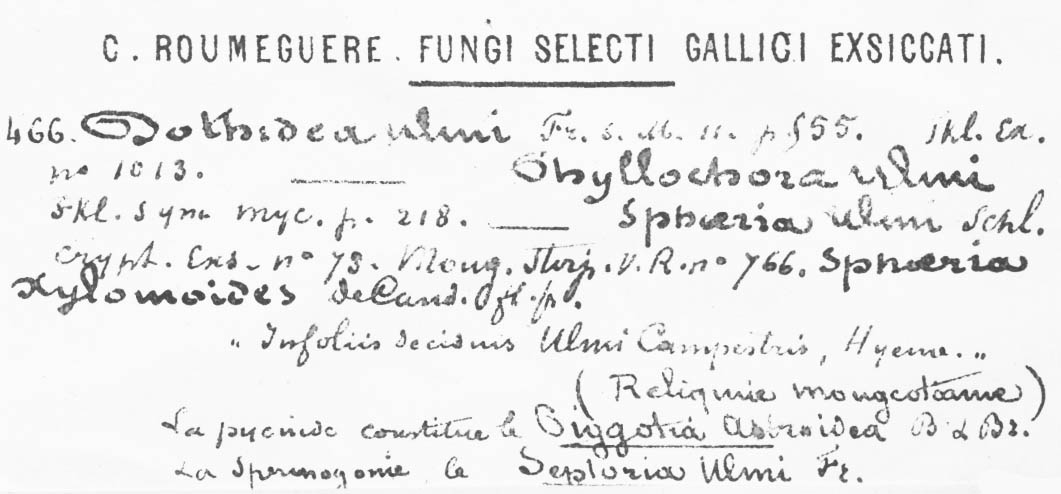 C. ROUMEGUERE. FUNGI SELECTI GALLICI EXSICCATI.
466. Dothidea ulmi Fr. S. M. II. p 555. Fkl. Ex.
no 1013. ——— Phyllochora Ulmi
Fkl. Syn. myc. p. 218. ——— Sphæria Ulmi Schl.
Crypt. Exs. no 73. Moug. Stirp. V. R. no 766. Sphæria
Xylomoides deCand. fl. fr.
" In foliis deciduis Ulmi Campestris, Hyeme. "
(Reliquiæ mougeotianæ)
La pycnide constitue le Piggotia Astroidea B & Br.
La Spermogonie le Septoria Ulmi Fr.